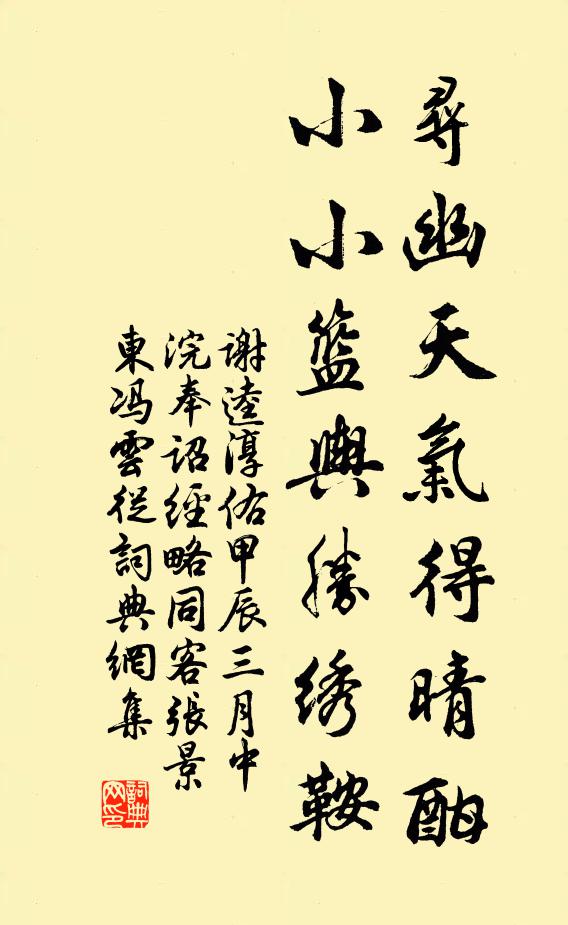 尋幽天氣得晴酣
小小籃輿勝绣鞍
謝逵淳佑甲辰三月中
浣奉詔經略同客張景
東冯雲從詞典網集
詞典网印